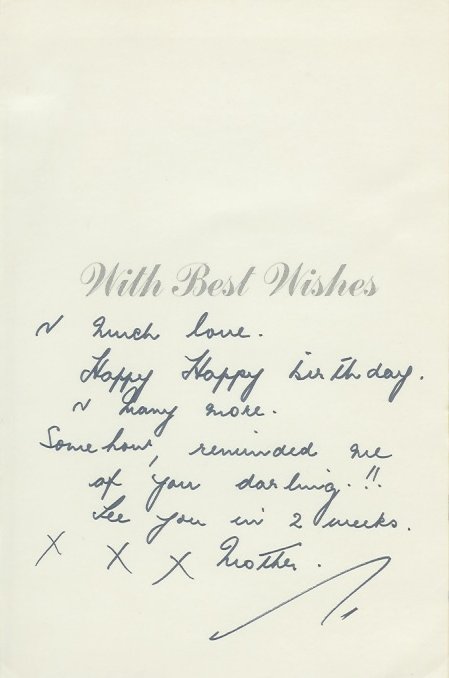 With Best Wishes
~ much love.
Happy Happy birthday.
~ many more.
Somehow, reminded me
of you darling.!!
See you in 2 weeks.
X X X Mother.